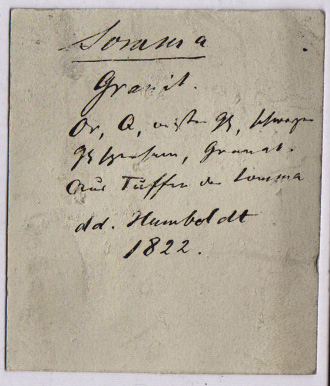 Somma
Granit.
Or, Q, weisser Gl, schwarzer
Gl, Granat.
Aus Tuffen der Somma
dd. Humboldt
1822.